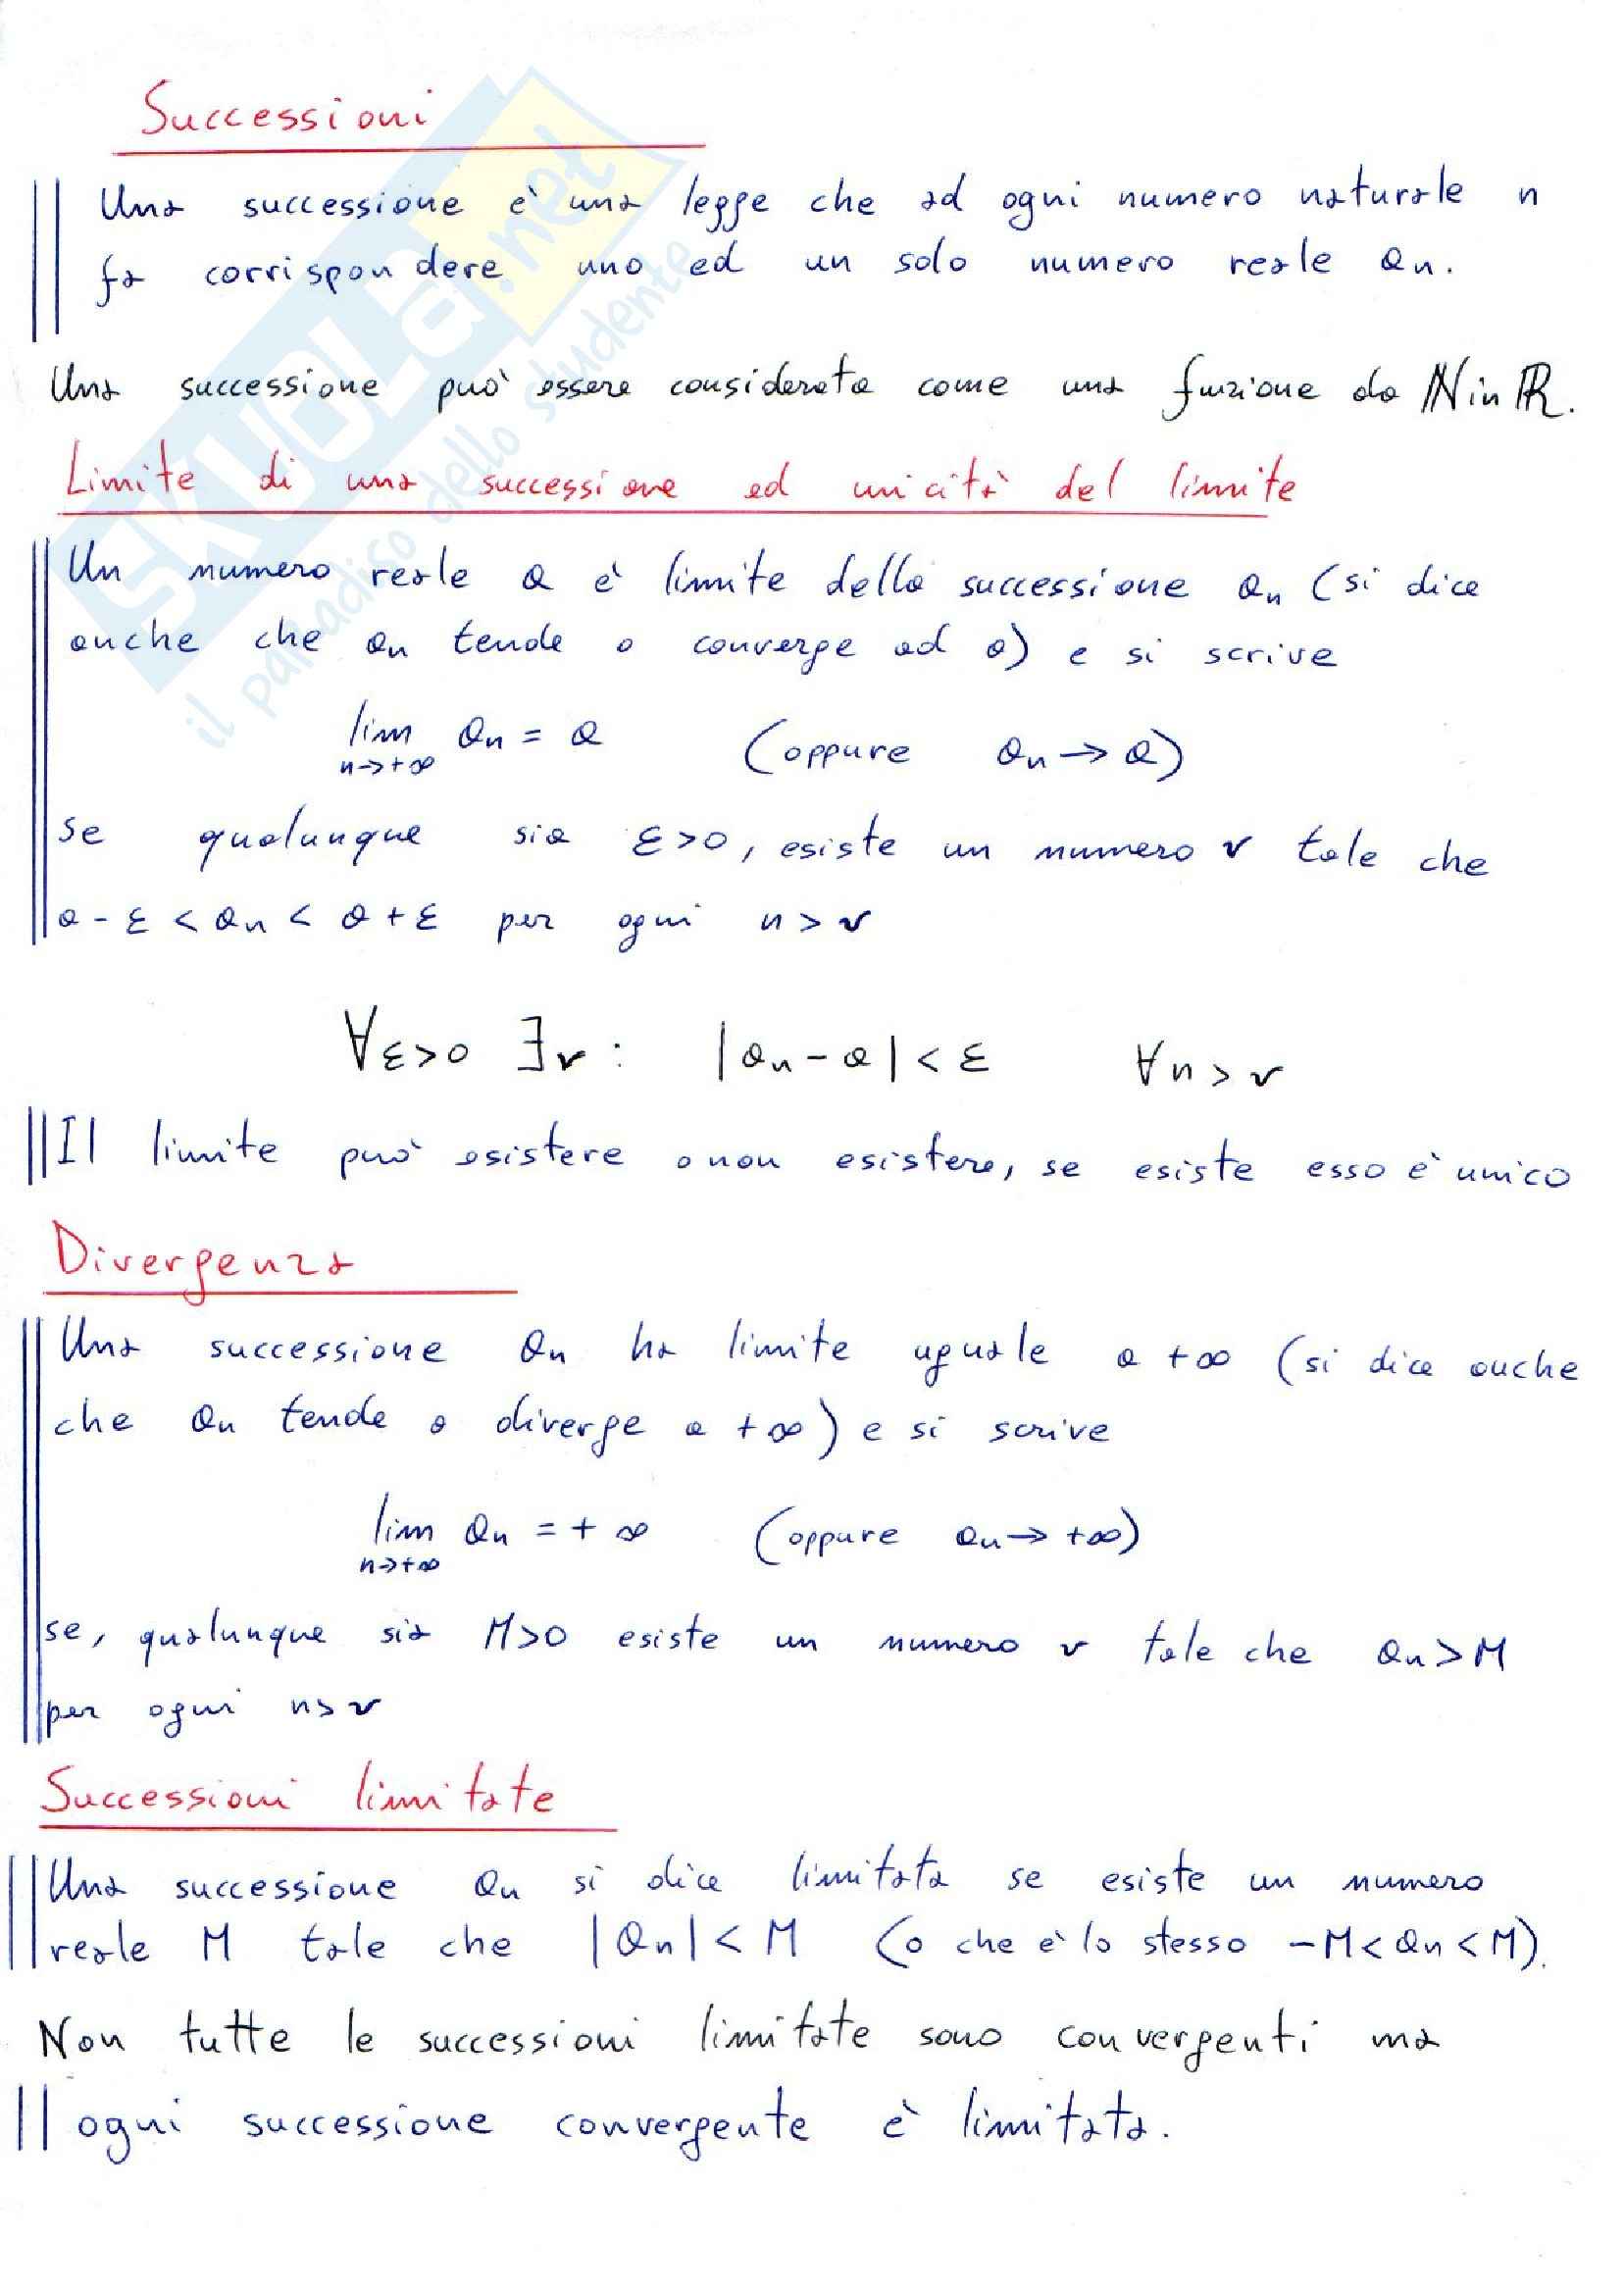 Successioni
Una successione è una legge che ad ogni numero naturale n
fa corrispondere uno ed un solo numero reale an.
Una successione può essere considerata come una funzione da ℕ in ℝ.
Limite di una successione ed unicità del limite
Un numero reale a è limite della successione an (si dice
anche che an tende o converge ad a) e si scrive
lim an = a (oppure an → a)
n→+∞
se qualunque sia ε>0, esiste un numero ν tale che
a - ε < an < a + ε per ogni n > ν
∀ε>0 ∃ν : |an - a| < ε ∀n > ν
Il limite può esistere o non esistere, se esiste esso è unico
Divergenza
Una successione an ha limite uguale a +∞ (si dice anche
che an tende o diverge a +∞) e si scrive
lim an = +∞ (oppure an → +∞)
n→+∞
se, qualunque sia M>0 esiste un numero ν tale che an > M
per ogni n > ν
Successioni limitate
Una successione an si dice limitata se esiste un numero
reale M tale che |an| < M (o che è lo stesso -M < an < M).
Non tutte le successioni limitate sono convergenti ma
ogni successione convergente è limitata.
SKUOLa.net
il paradiso dello studente